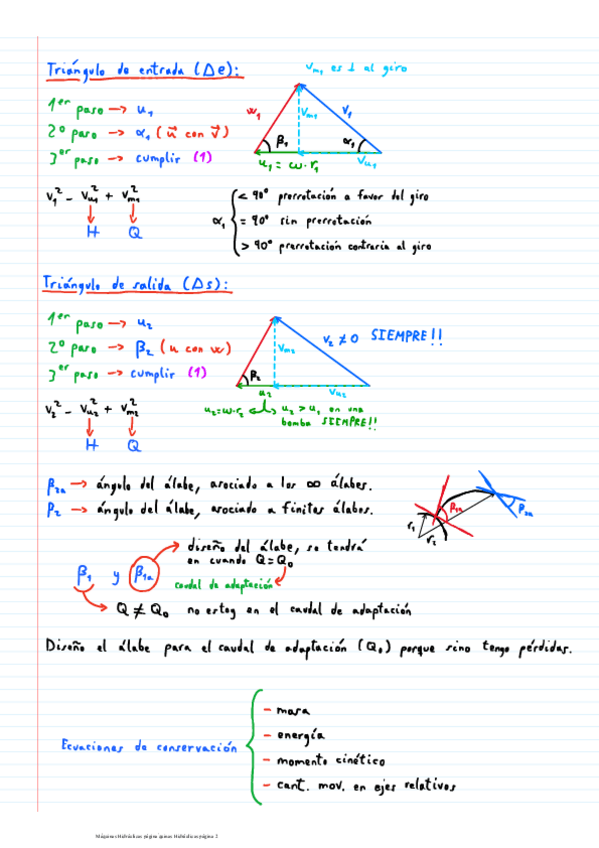 Triángulo de entrada (Δe):
Vm1 es ⊥ al giro
1er paso → u1
2º paso → α1 (u⃗ con v⃗)
3er paso → cumplir (1)
w1 Vm1 V1
β1 α1
u1 = ω·r1 Vu1
V1² - Vu1² + Vm1²
H Q
α1
< 90° prerrotación a favor del giro
= 90° sin prerrotación
> 90° prerrotación contraria al giro
Triángulo de salida (Δs):
1er paso → u2
2º paso → β2 (u con w)
3er paso → cumplir (1)
Vm2 V2 ≠ 0 SIEMPRE!!
β2
u2 Vu2
u2=ω·r2 u2 > u1 en una
bomba SIEMPRE!!
V2² - Vu2² + Vm2²
H Q
β2a → ángulo del álabe, asociado a los ∞ álabes.
β2 → ángulo del álabe, asociado a finitos álabes.
β1a β2a
r1 r2
β1 y β1a
diseño del álabe, se tendrá
en cuando Q=Q0
caudal de adaptación
Q ≠ Q0 no estoy en el caudal de adaptación
Diseño el álabe para el caudal de adaptación (Q0) porque sino tengo pérdidas.
Ecuaciones de conservación
- masa
- energía
- momento cinético
- cant. mov. en ejes relativos